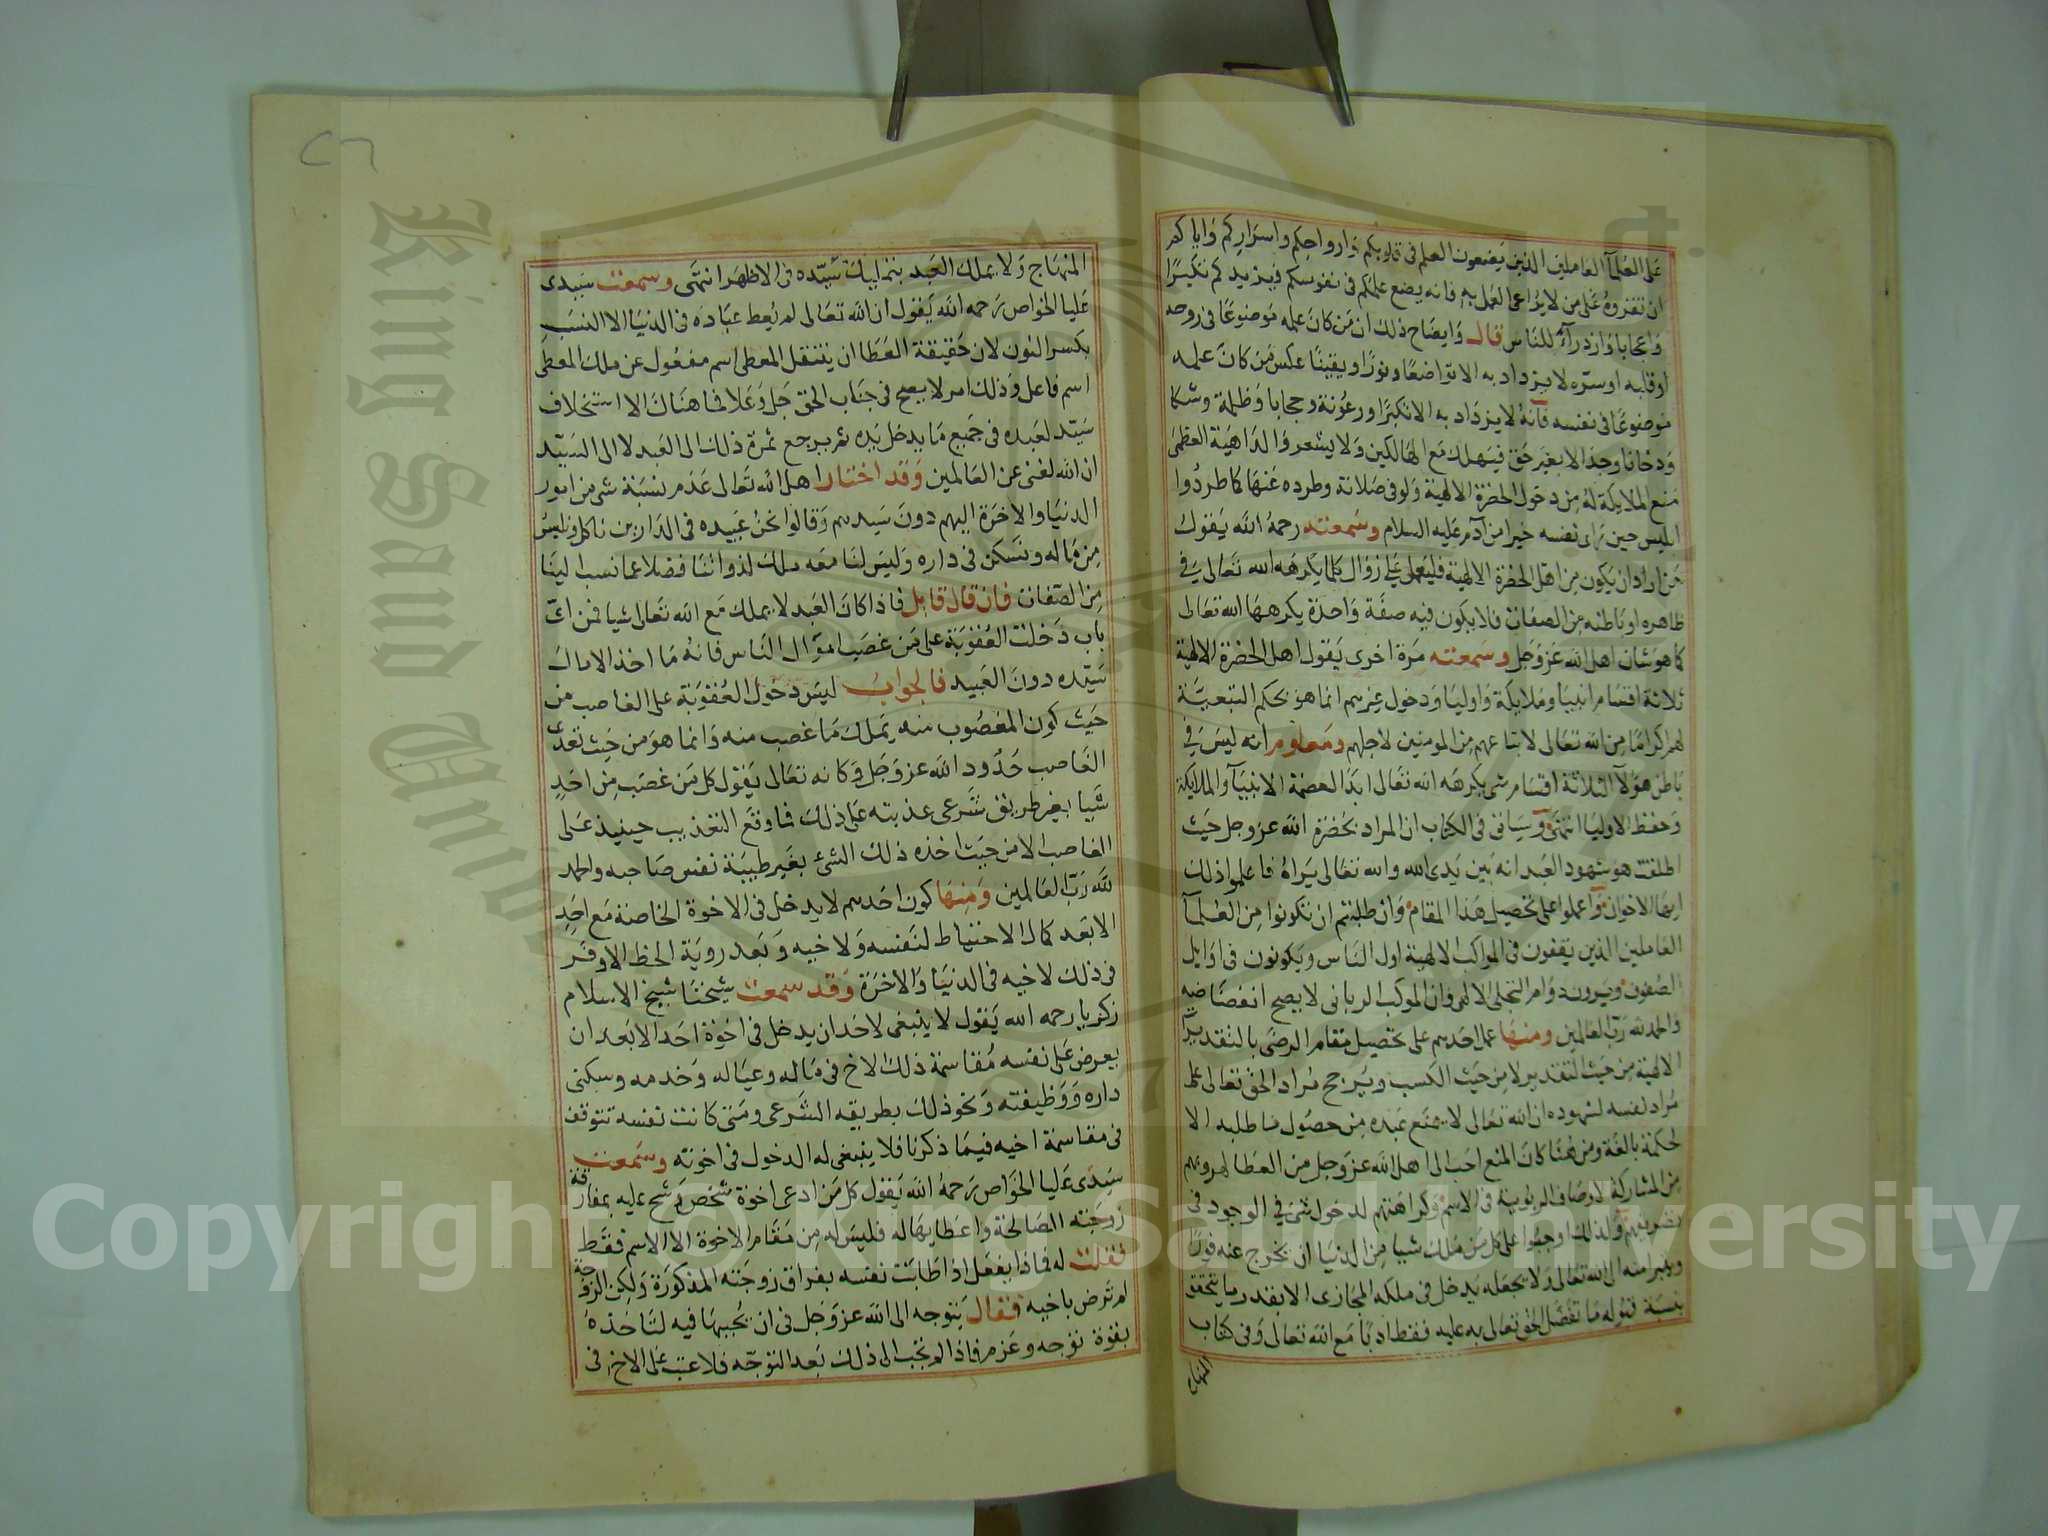 على العلمآ العاملين الذين يضعون العلم فى قلوبكم وارواحكم واسراركم واياكم
ان تقروه على من لا يراعى العمل به فانه يضع علمكم فى نفوسكم فيزيدكم تكبرا
واعجابا وازدرآء للناس قال وايضاح ذلك ان من كان علمه موضوعا فى روحه
او قلبه او سره لا يزداد به الا تواضعا ونورا ويقينا عكس من كان علمه
موضوعا فى نفسه فانه لا يزداد به الا تكبرا ورعونة وحجابا وظلمة وشكا
ودخانا وجدالا بغير حق فيهلك مع الهالكين ولا يشعر والداهية العظمى
منع الملايكة له من دخول الحضرة الالهية ولو فى صلاته وطرده عنها كما طردوا
ابليس حين راى نفسه خيرا من آدم عليه السلام وسمعته رحمه الله يقول
من اراد ان يكون من اهل الحضرة الالهية فليعمل على زوال كلما يكرهه الله تعالى فى
ظاهره او باطنه من الصفات فلا يكون فيه صفة واحدة يكرهها الله تعالى
كما هو شان اهل الله عز وجل وسمعته مرة اخرى يقول اهل الحضرة الالهية
ثلاثة اقسام انبيا وملايكة واوليا ودخول غيرهم انما هو بحكم التبعية
لهم اكراما من الله تعالى لاتباعهم من المومنين لاجلهم ومعلوم انه ليس فى
باطن هولآ الثلاثة اقسام شى يكرهه الله تعالى ابدا لعصمة الانبيآ والملايكة
وحفظ الاوليا انتهى وسياتى فى الكتاب ان المراد بحضرة الله عز وجل حيث
اطلقت هو شهود العبد انه بين يدى الله والله تعالى يراه فاعلموا ذلك
ايها الاخوان واعملوا على تحصيل هذا المقام وان طلبتم ان تكونوا من العلمآ
العاملين الذين يقفون فى المواكب الالهية اول الناس ويكونون فى اوايل
الصفوف ويرون دوام التجلى الالهى وان الموكب الربانى لا يصح انفضاضه
والحمد لله رب العالمين ومنها عمل احدهم على تحصيل مقام الرضى بالتقدير
الالهية من حيث التقدير لا من حيث الكسب ويرجح مراد الحق تعالى على
مراد نفسه لشهوده ان الله تعالى لا يمنع عبده من حصول ما طلبه الا
لحكمة بالغة ومن هنا كان المنع احب الى اهل الله عز وجل من العطا لهروبهم
من المشاركة لاوصاف الربوبية فى الاسم وكراهتهم لدخول شى فى الوجود فى
ولذلك اوجبوا على كل من ملك شيا من الدنيا ان يخرج عنه فورا
ويتبرا منه الى الله تعالى ولا يجعله يدخل فى ملكه المجازى الا بقدر ما يتحقق
بنسبة قبوله ما تفضل الحق تعالى به عليه فقط ادبا مع الله تعالى وفى كتاب
المنهاج
٢٦
المنهاج ولا يملك العبد بتمليك سيده فى الاظهر انتهى وسمعت سيدى
عليا الخواص رحمه الله يقول ان الله تعالى لم يعط عباده فى الدنيا الا النسب
بكسر النون لان حقيقة العطا ان ينتقل المعطى اسم مفعول عن ملك المعطى
اسم فاعل وذلك امر لا يصح فى جناب الحق جل وعلا فما هناك الا استخلاف
سيد لعبده فى جميع ما يدخل يده ثم يرجع ثمرة ذلك الى العبد لا الى السيد
ان الله لغنى عن العالمين وقد اختار اهل الله تعالى عدم نسبة شى من امور
الدنيا والاخرة اليهم دون سيدهم وقالوا نحن عبيده فى الدارين ناكل ونلبس
من ماله ونسكن فى داره وليس لنا معه ملك لذواتنا فضلا عما نسب الينا
من الصفات فان قال قايل فاذا كان العبد لا يملك مع الله تعالى شيا فمن اى
باب دخلت العقوبة على من غصب اموال الناس فانه ما اخذ الا مال
سيده دون العبيد فالجواب ليس دخول العقوبة على الغاصب من
حيث كون المغصوب منه يملك ما غصب منه وانما هو من حيث تعدى
الغاصب حدود الله عز وجل وكانه تعالى يقول كل من غصب من احد
شيا بغير طريق شرعى عذبته على ذلك فما وقع التعذيب حينيذ على
الغاصب الا من حيث اخذه ذلك الشئ بغير طيبة نفس صاحبه والحمد
لله رب العالمين ومنها كون احدهم لا يدخل فى الاخوة الخاصة مع احد
الا بعد كمال الاحتياط لنفسه ولاخيه وبعد روية الحظ الاوفر
فى ذلك لاخيه فى الدنيا والاخرة وقد سمعت شيخنا شيخ الاسلام
زكريا رحمه الله يقول لا ينبغى لاحد ان يدخل فى اخوة احد الا بعد ان
يعرض على نفسه مقاسمة ذلك الاخ فى ماله وعياله وخدمه وسكنى
داره ووظيفته ونحو ذلك بطريقه الشرعى ومتى كانت نفسه تتوقف
فى مقاسمة اخيه فيما ذكرنا فلا ينبغى له الدخول فى اخوته وسمعت
سيدى عليا الخواص رحمه الله يقول كل من ادعى اخوة شخص وشح عليه بمفارقة
زوجته الصالحة واعطايها له فليس له من مقام الاخوة الا الاسم فقط
فقلت له فماذا يفعل اذا طابت نفسه بفراق زوجته المذكورة ولكن الزوجة
لم ترض باخيه فقال يتوجه الى الله عز وجل فى ان يحببها فيه لتاخذه
بقوة توجه وعزم فاذا لم تجب الى ذلك بعد التوجه فلا عتب على الاخ فى
King Saud University
Copyright © King Saud University
1957